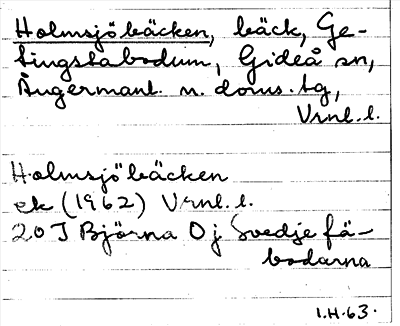 Holmsjöbäcken, bäck, Ge-
tingstabodum, Gideå sn,
Ångermanl. n. doms. tg,
Vrnl. l.
Holmsjöbäcken
ek (1962) Vrnl. l.
20 J Björna O j Svedje fä-
bodarna
I.H.63.